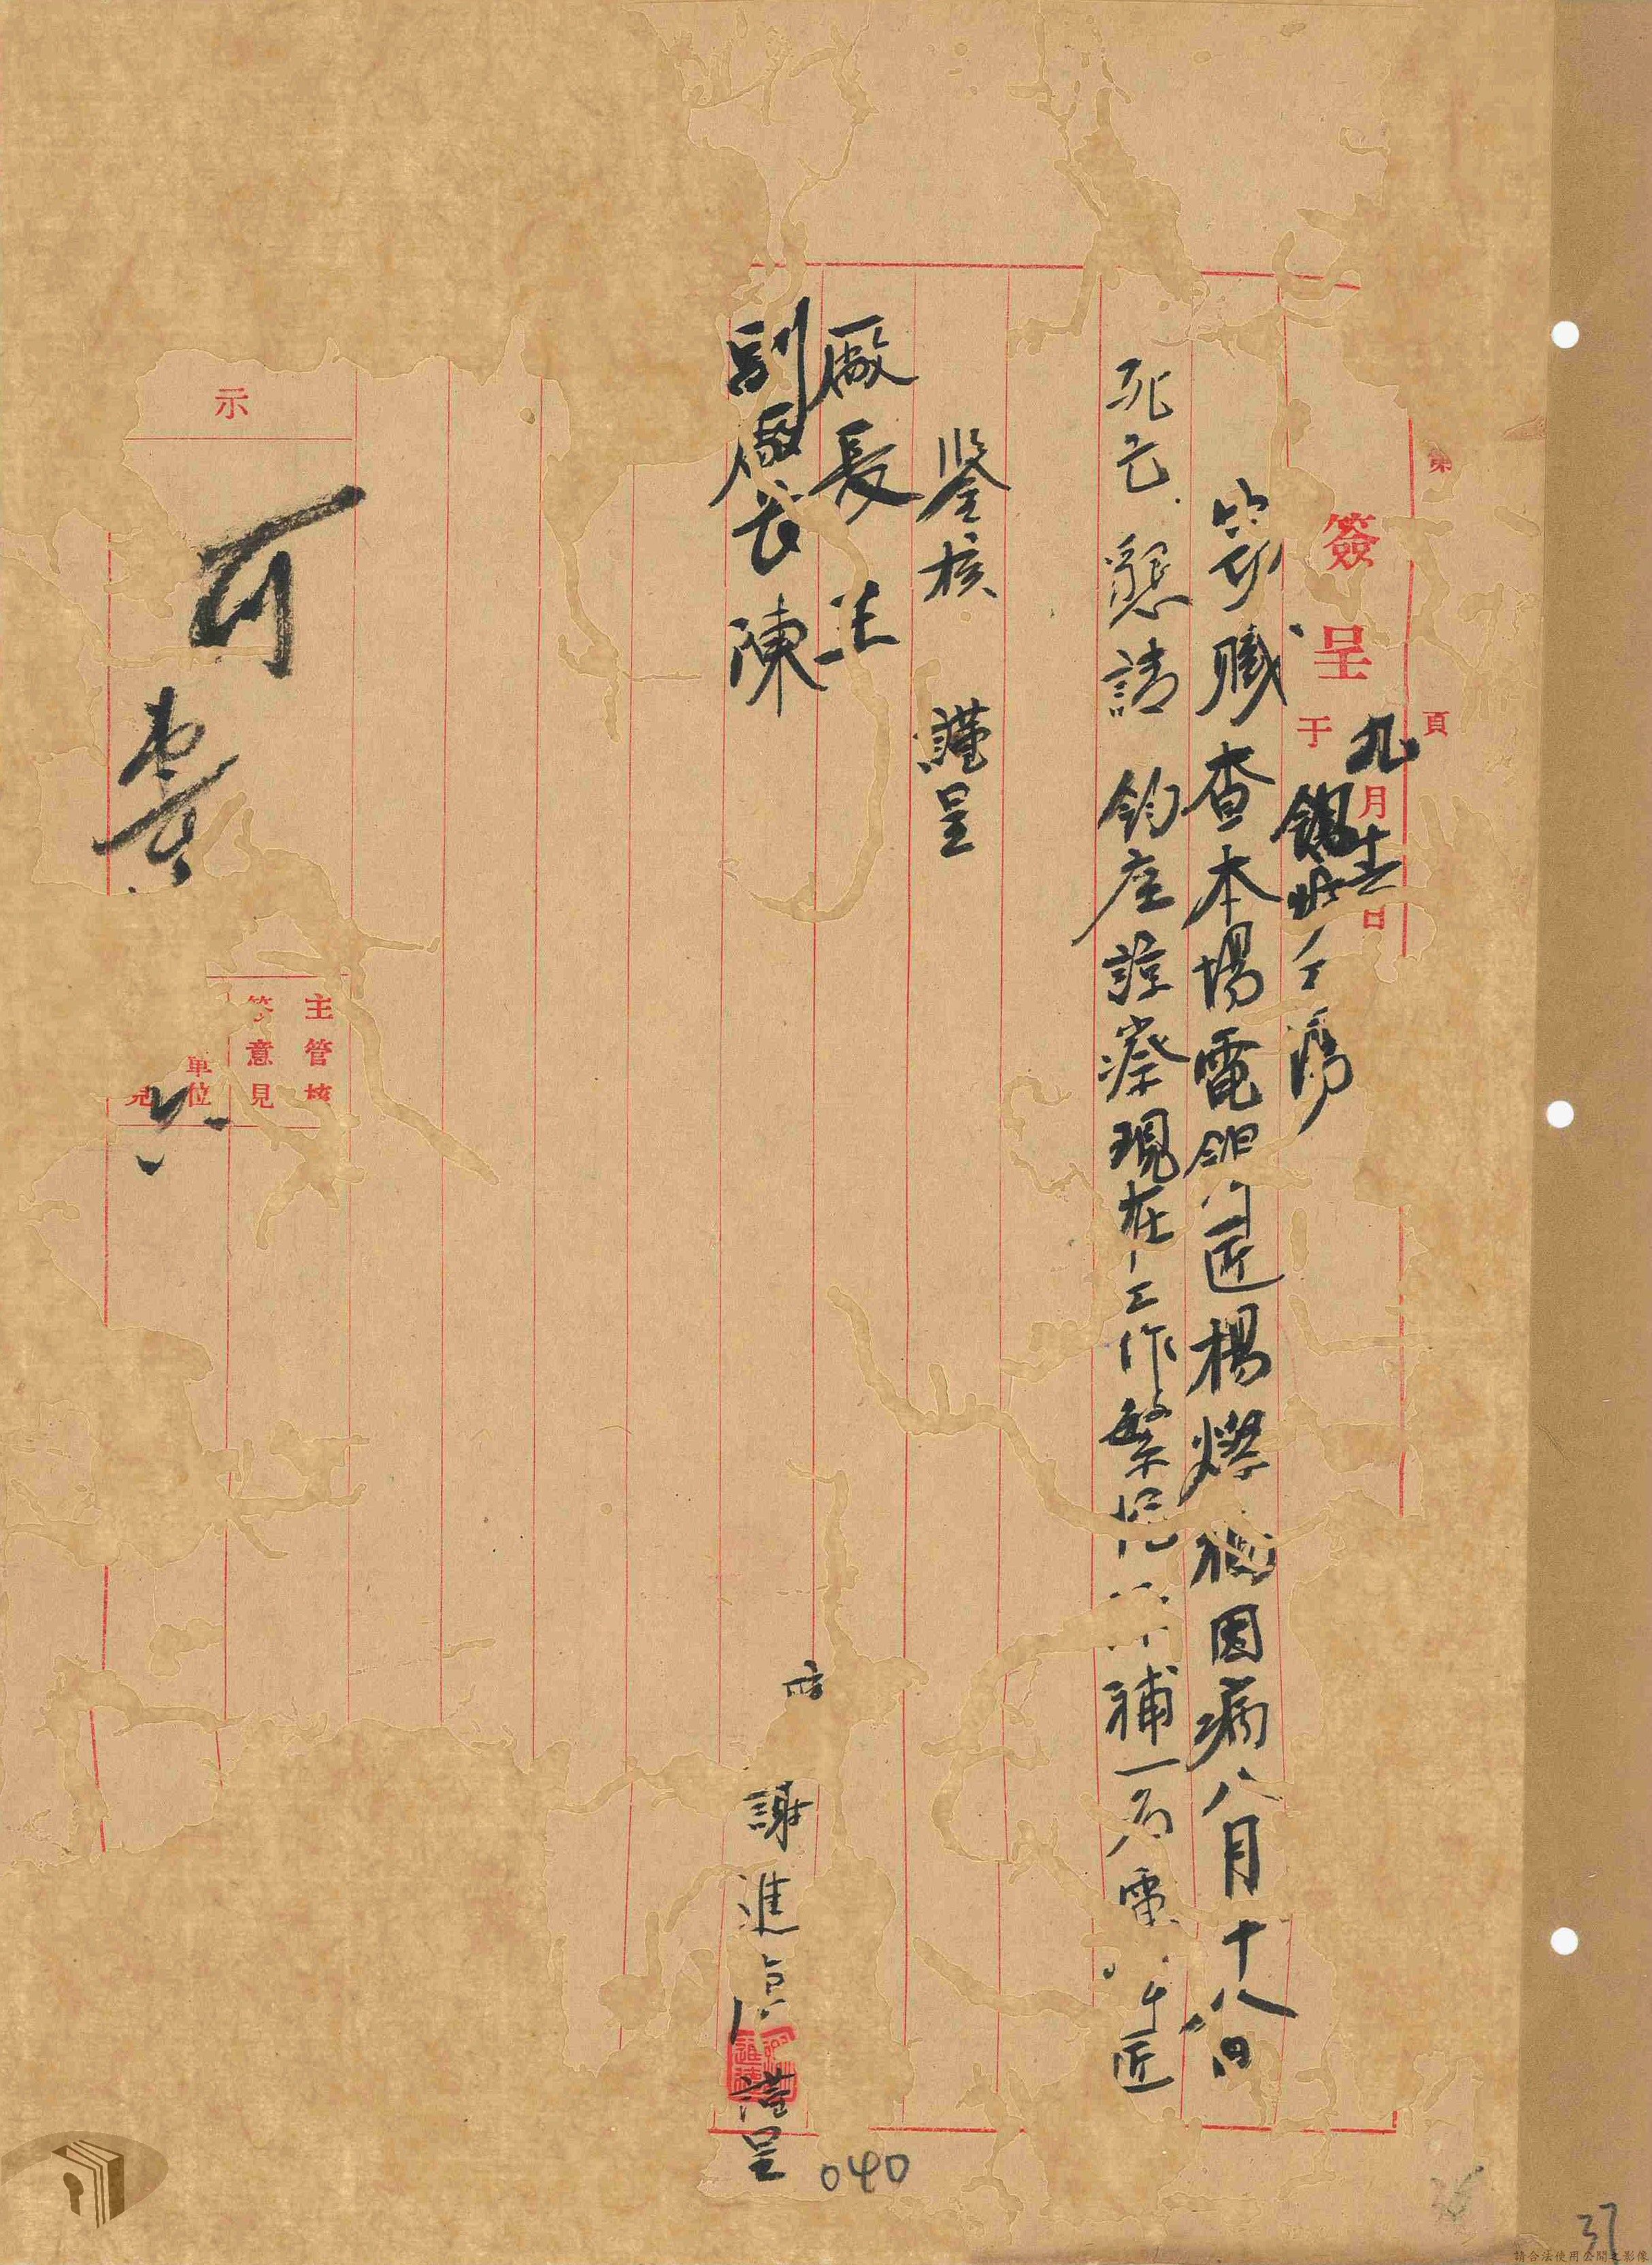 第 頁
簽呈 于 九月十六日
鍋爐工場
竊職查本場電銲工匠楊燦 因病八月十八日
死亡懇請 鈞座諒察現在工作繁 補一名電 工匠
鑒核 謹呈
廠長 王
副廠長 陳
職 謝進 謹呈
示
可
主管核
簽意見
單位
見
040
37
請合法使用公開之影像